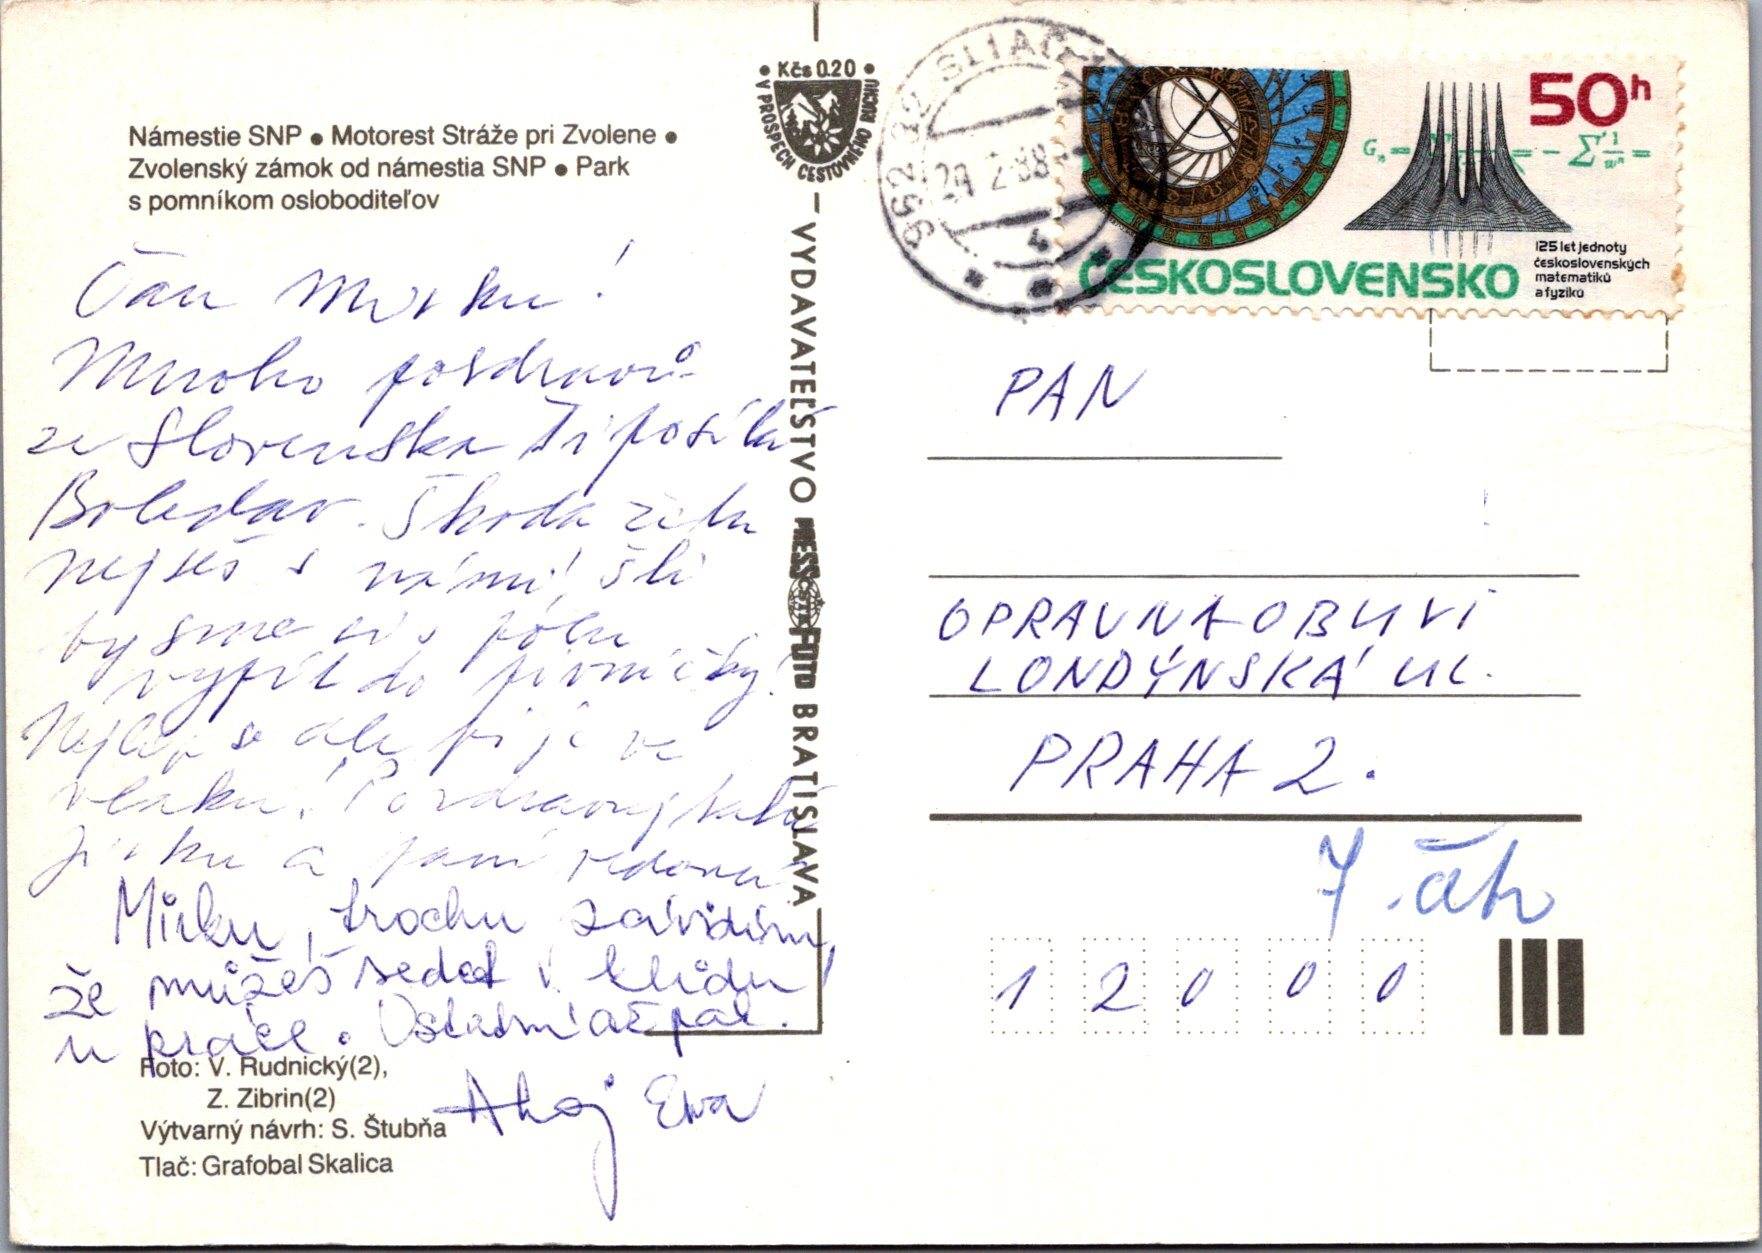 Námestie SNP ● Motorest Stráže pri Zvolene ●
Zvolenský zámok od námestia SNP ● Park
s pomníkom osloboditeľov
Kčs 0.20
V PROSPECH CESTOVNÉHO RUCHU
VYDAVATEĽSTVO PRESSFOTO BRATISLAVA
962 32 SLIAČ
29.2.88
4
50h
125 let jednoty
československých
matematiků
a fyziků
ČESKOSLOVENSKO
Čau Mirku!
Mnoho pozdravů
ze Slovenska Ti posílá
Boleslav. Škoda že tu
nejseš s námi! Šli
by sme si spolu
vypít do pivničky!
Nejlíp se ale pije ve
vlaku! Pozdravuj také
Jirku a paní
Mirku, trochu závidím,
že můžeš sedět v klidu
u práce. Ostatní až pak.
Ahoj Eva
Foto: V. Rudnický(2),
Z. Zibrin(2)
Výtvarný návrh: S. Štubňa
Tlač: Grafobal Skalica
PAN
OPRAVNA OBUVI
LONDÝNSKÁ UL.
PRAHA 2.
12000